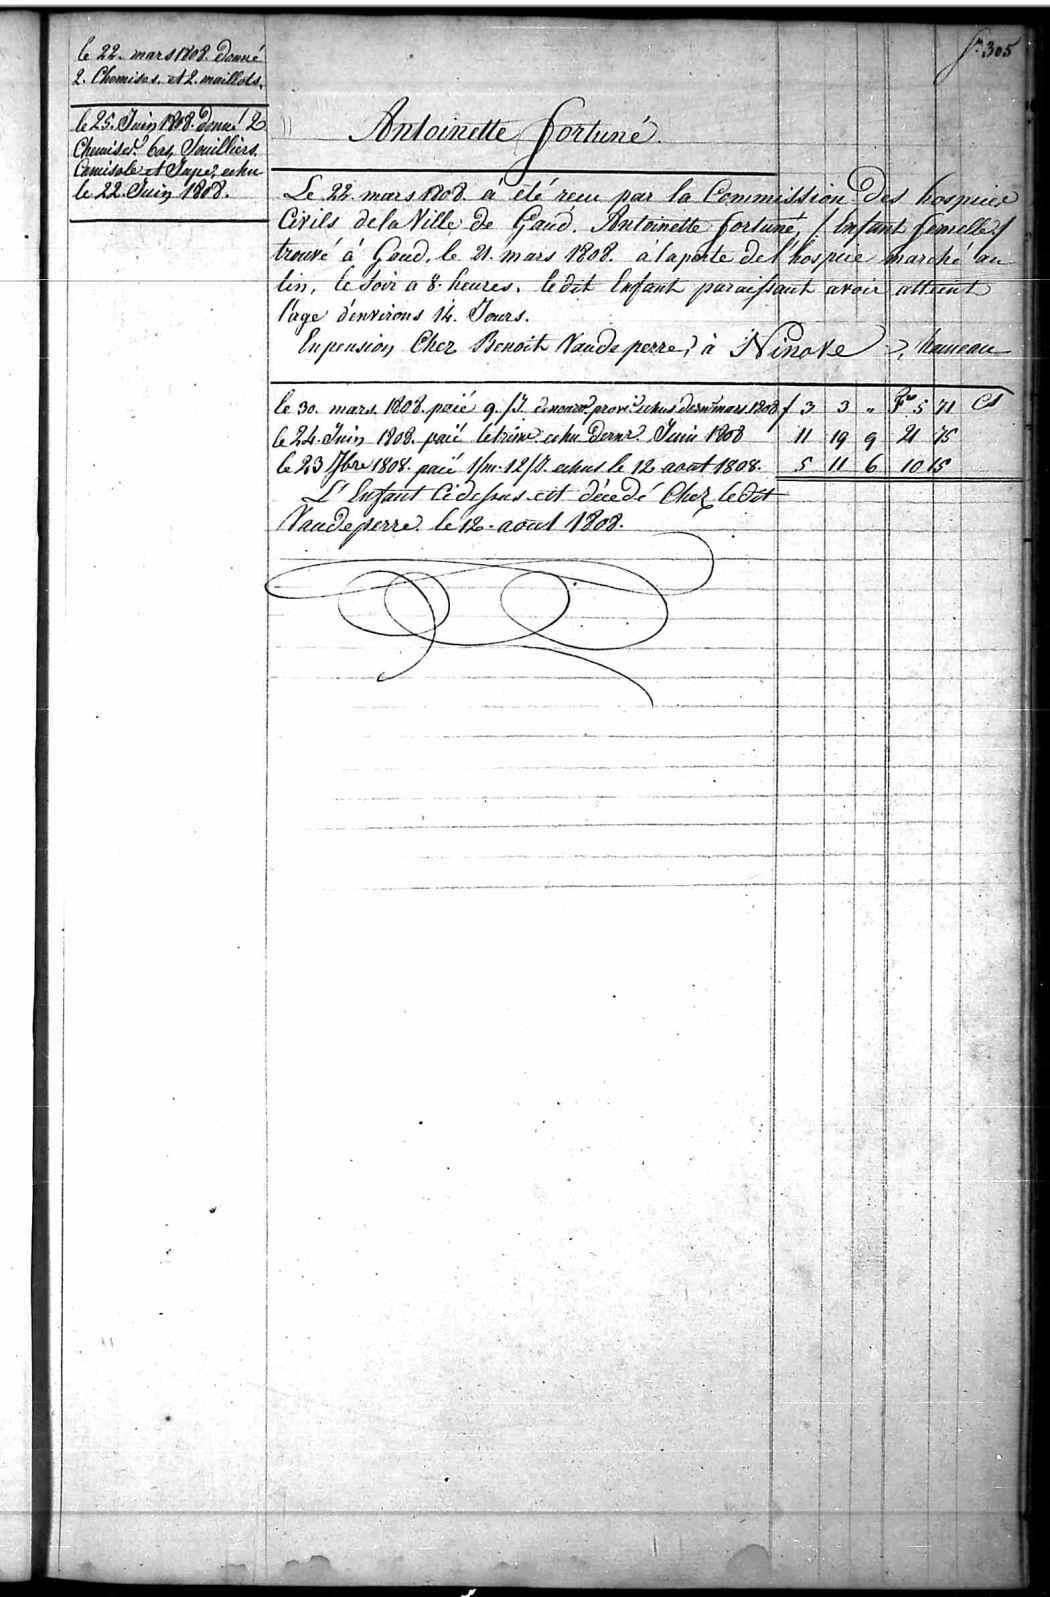 fo. 305
le 22. mars 1808. donné
2. Chemises. et 2. maillots.
le 25. Juin 1808. donné 2
Chemises bas, Souilliers.
Camisole et Jupe, echu
le 22. Juin 1808.
Antoinette fortuné.
Le 22. mars 1808. à été recu par la Commission des hospice
Civils de la Ville de Gand. Antoinette fortuné, / Enfant femelle /
trouvé à Gand, le 21. mars 1808. à la porte de l'hospice marché au
lin, le Soir a 8. heures. ledit Enfant paraissant avoir atteint
l'age d'environs 14. Jours.
En pension Chez Benoit Vandeperre, à Ninove hameau
le 30. mars. 1808. paié 9./J. denour. prov. echus dernr mars 1808 f 3 3 " Fs 5 71 Cs
le 24. Juin 1808. paié letrim. echu dernr. Juin 1808 11 19 9 21 75
le 23 7bre 1808. paié 1/m. 12/J. echus le 12 aout 1808. 5 11 6 10 15
L'Enfant Cidessus est décedé Chez ledit
Vandeperre le 12. aout 1808.